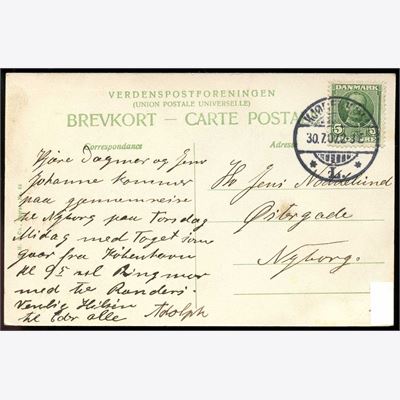 VERDENSPOSTFORENINGEN
(UNION POSTALE UNIVERSELLE)
BREVKORT – CARTE POSTA
Correspondance
Adres
DANMARK
5 ØRE
30.7.07
Kjære Dagmar og Jens
Johanne kommer
paa gjennemreise
til Nyborg paa Torsdag
Midag med Toget som
gaar fra København
Kl 95
med til Randers
Venlig Hilsen
til Eder alle Adolph
Hr Jens
Østergade
Nyborg.